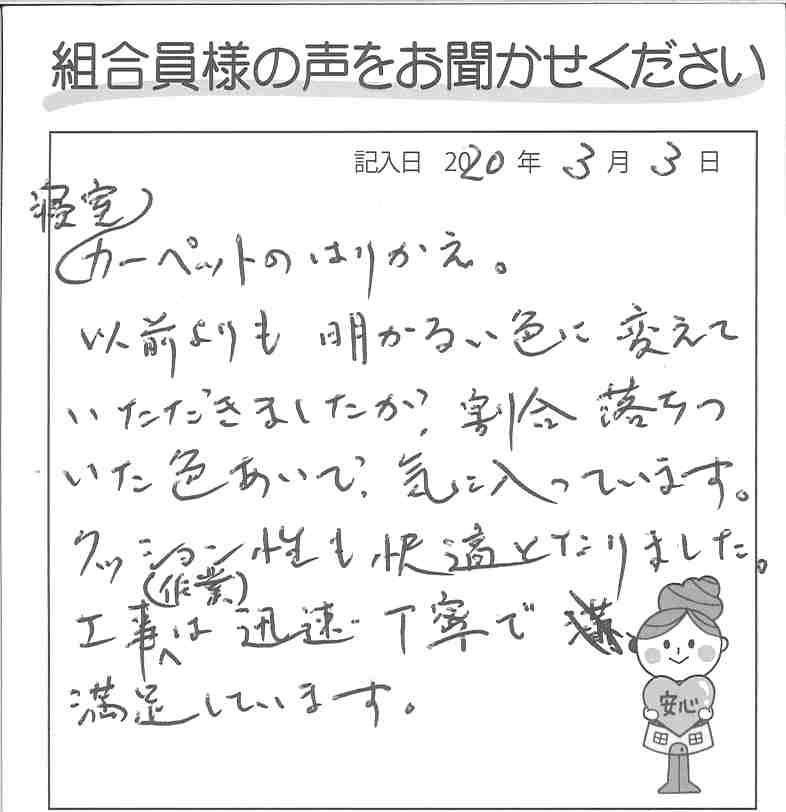 組合員様の声をお聞かせください
記入日 2020年 3月 3日
寝室
カーペットのはりかえ。
以前よりも 明かるい色に 変えて
いただきましたが、割合 落ちつ
いた色あいで、気に入っています。
クッション性も快適となりました。
(作業)
工事は 迅速 丁寧で
満足しています。
安心